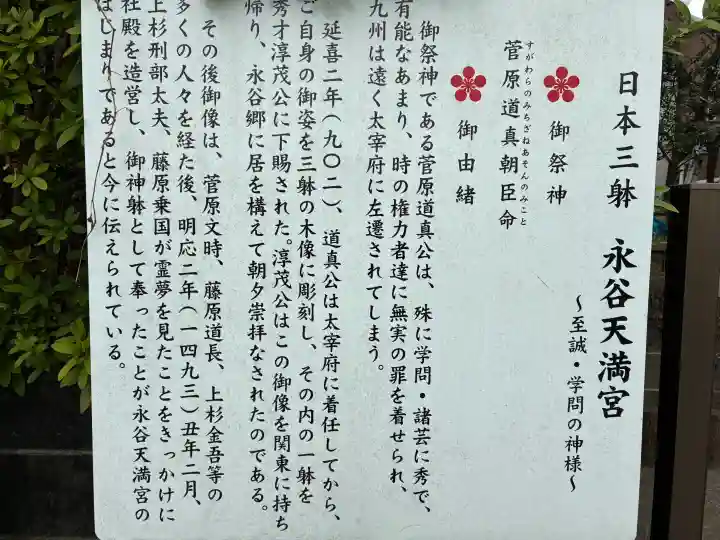 日本三躰　永谷天満宮
～至誠・学問の神様～
御祭神
すがわらのみちざねあそんのみこと
菅原道真朝臣命
御由緒
御祭神である菅原道真公は、殊に学問・諸芸に秀で、
有能なあまり、時の権力者達に無実の罪を着せられ、
九州は遠く太宰府に左遷されてしまう。
延喜二年（九〇二）、道真公は太宰府に着任してから、
ご自身の御姿を三躰の木像に彫刻し、その内の一躰を
秀才淳茂公に下賜された。淳茂公はこの御像を関東に持ち
帰り、永谷郷に居を構えて朝夕崇拝なされたのである。
その後御像は、菅原文時、藤原道長、上杉金吾等の
多くの人々を経た後、明応二年（一四九三）丑年二月、
上杉刑部太夫、藤原乗国が霊夢を見たことをきっかけに
社殿を造営し、御神躰として奉ったことが永谷天満宮の
はじまりであると今に伝えられている。